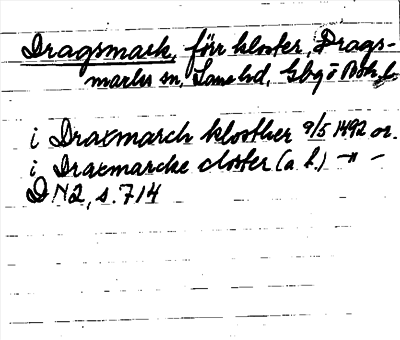 Dragsmark, förr kloster, Drags-
marks sn, Lane hd, Gbg o Boh. l.
i Draxmarch klosther 9/5 1492 or.
i Draxmarcke closter (a. h.) -"-
DN 2, s. 714